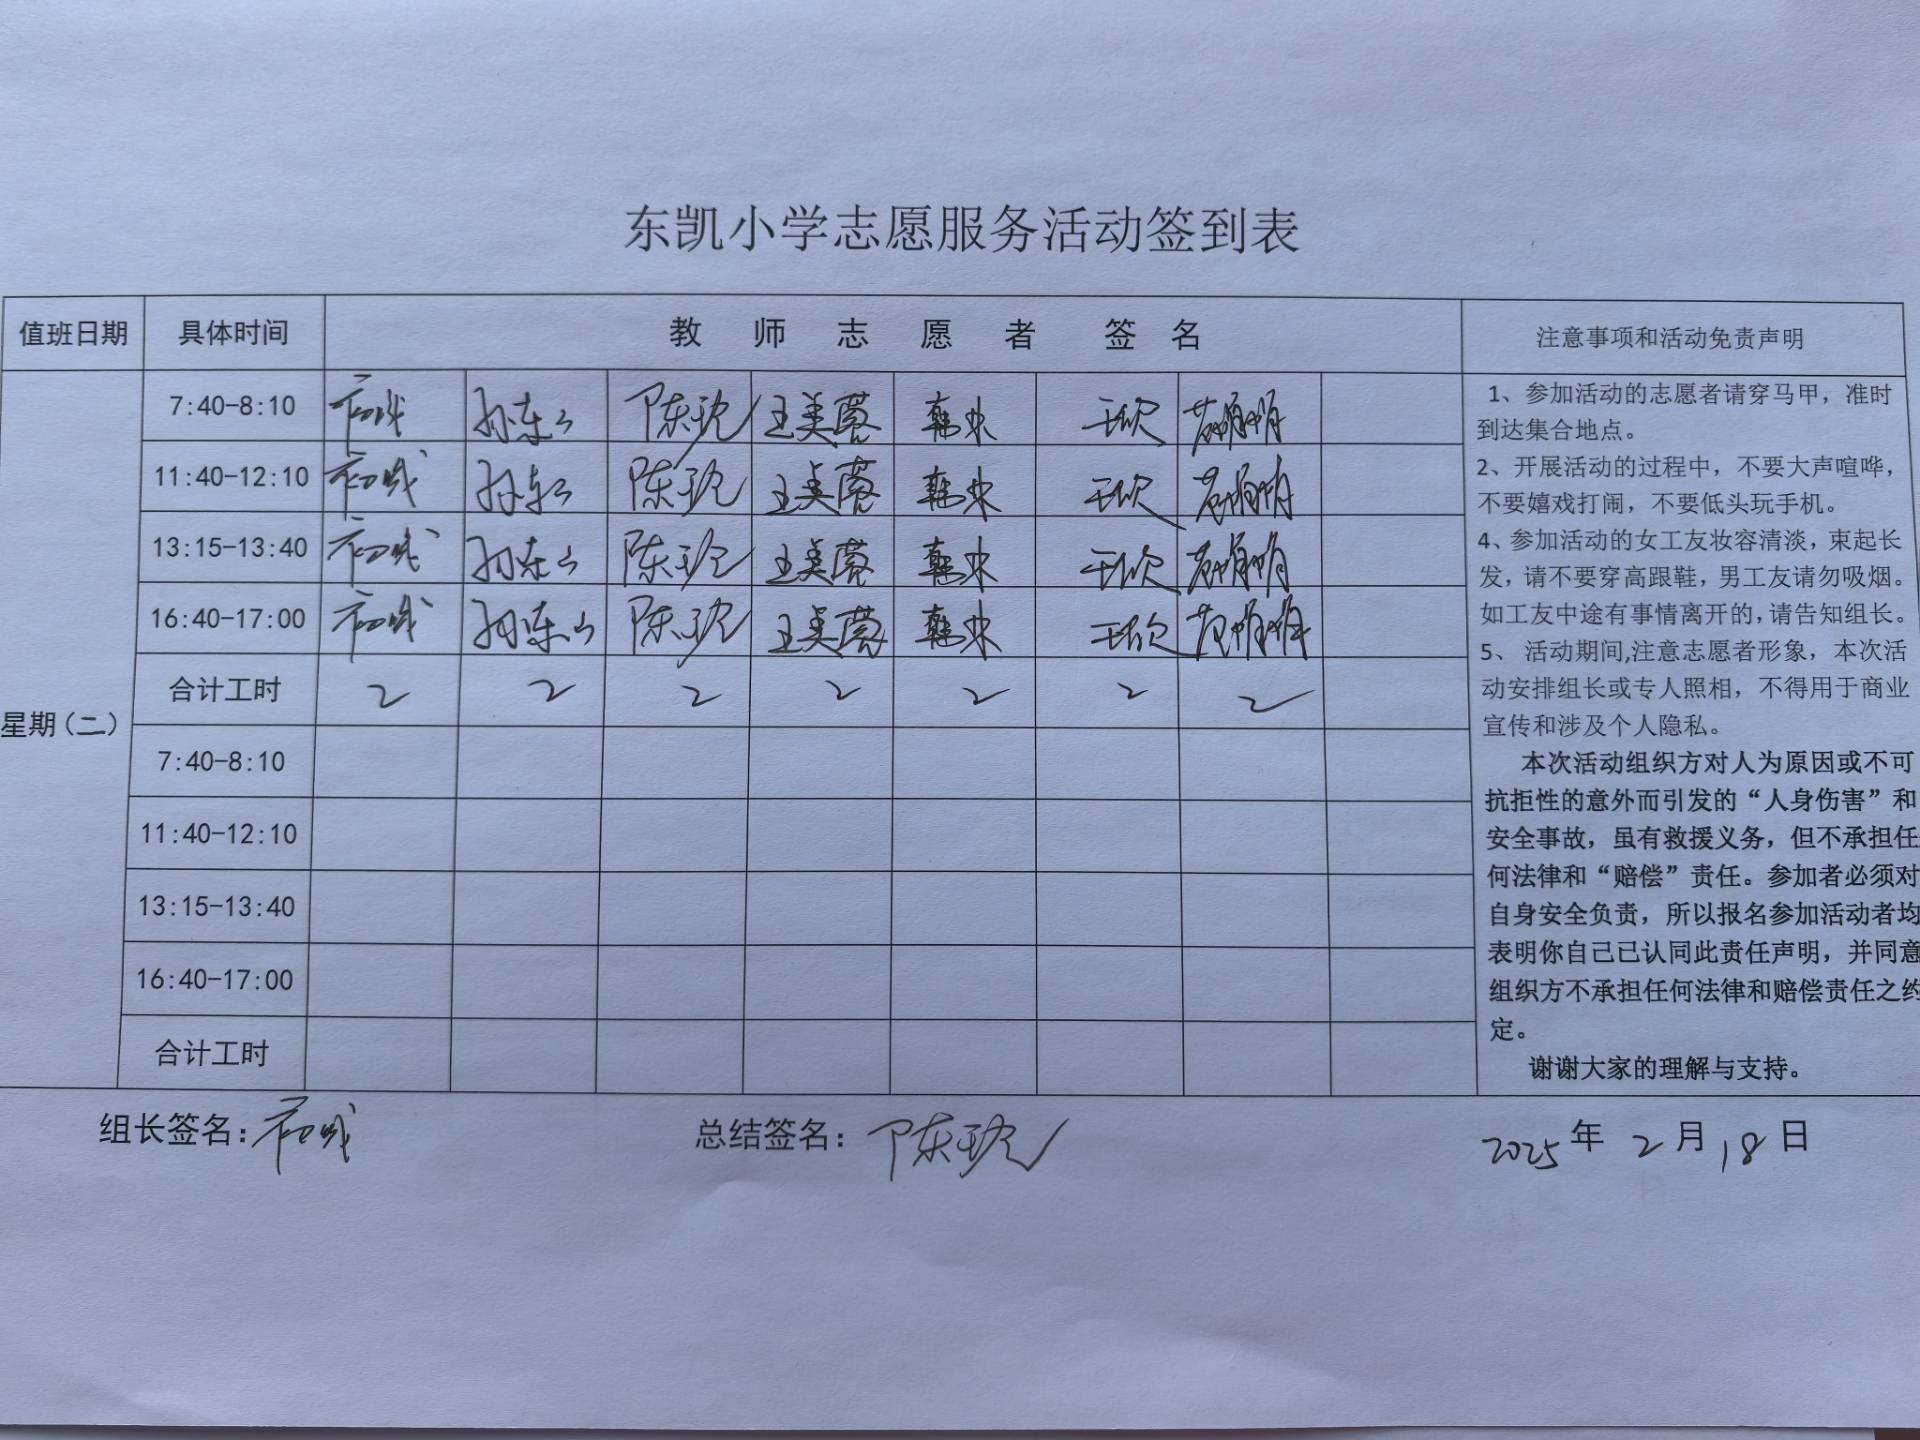 东凯小学志愿服务活动签到表
值班日期 具体时间 教师志愿者 签名 注意事项和活动免责声明
星期(二)
7:40-8:10 孙东山 陈玲 王美蓉 韩冰 王欣
11:40-12:10 孙东山 陈玲 王美蓉 王欣
13:15-13:40 孙东山 陈玲 王美蓉 王欣
16:40-17:00 孙东山 陈玲 王美蓉 王欣
合计工时 2 2 2 2 2 2 2
7:40-8:10
11:40-12:10
13:15-13:40
16:40-17:00
合计工时
1、参加活动的志愿者请穿马甲，准时
到达集合地点。
2、开展活动的过程中，不要大声喧哗，
不要嬉戏打闹，不要低头玩手机。
4、参加活动的女工友妆容清淡，束起长
发，请不要穿高跟鞋，男工友请勿吸烟。
如工友中途有事情离开的，请告知组长。
5、 活动期间,注意志愿者形象，本次活
动安排组长或专人照相，不得用于商业
宣传和涉及个人隐私。
本次活动组织方对人为原因或不可
抗拒性的意外而引发的“人身伤害”和
安全事故，虽有救援义务，但不承担任
何法律和“赔偿”责任。参加者必须对
自身安全负责，所以报名参加活动者均
表明你自己已认同此责任声明，并同意
组织方不承担任何法律和赔偿责任之约
定。
谢谢大家的理解与支持。
组长签名： 总结签名：陈玲 2025年2月18日